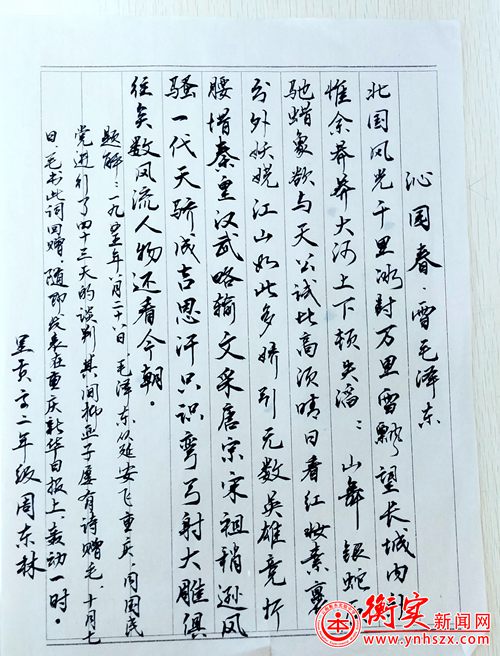 沁园春·雪 毛泽东
北国风光千里冰封万里雪飘望长城内外
惟余莽莽大河上下顿失滔：山舞银蛇原
驰蜡象欲与天公试比高须晴日看红妆素裹
分外妖娆江山如此多娇引无数英雄竞折
腰惜秦皇汉武略输文采唐宗宋祖稍逊风
骚一代天骄成吉思汗只识弯弓射大雕俱
往矣数风流人物还看今朝。
题解：一九四五年八月二十八日，毛泽东从延安飞重庆，同国民
党进行了四十三天的谈判，其间柳亚子屡有诗赠毛，十月七
日，毛书此词回赠。随即发表在重庆新华日报上，轰动一时。
二年级 周东林
衡实新闻网
www.ynhszx.com